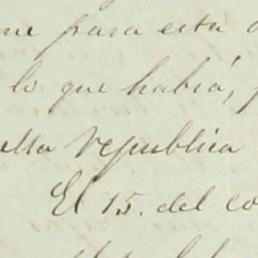 me para esta
lo que habiá,
Republica
El 15. del co